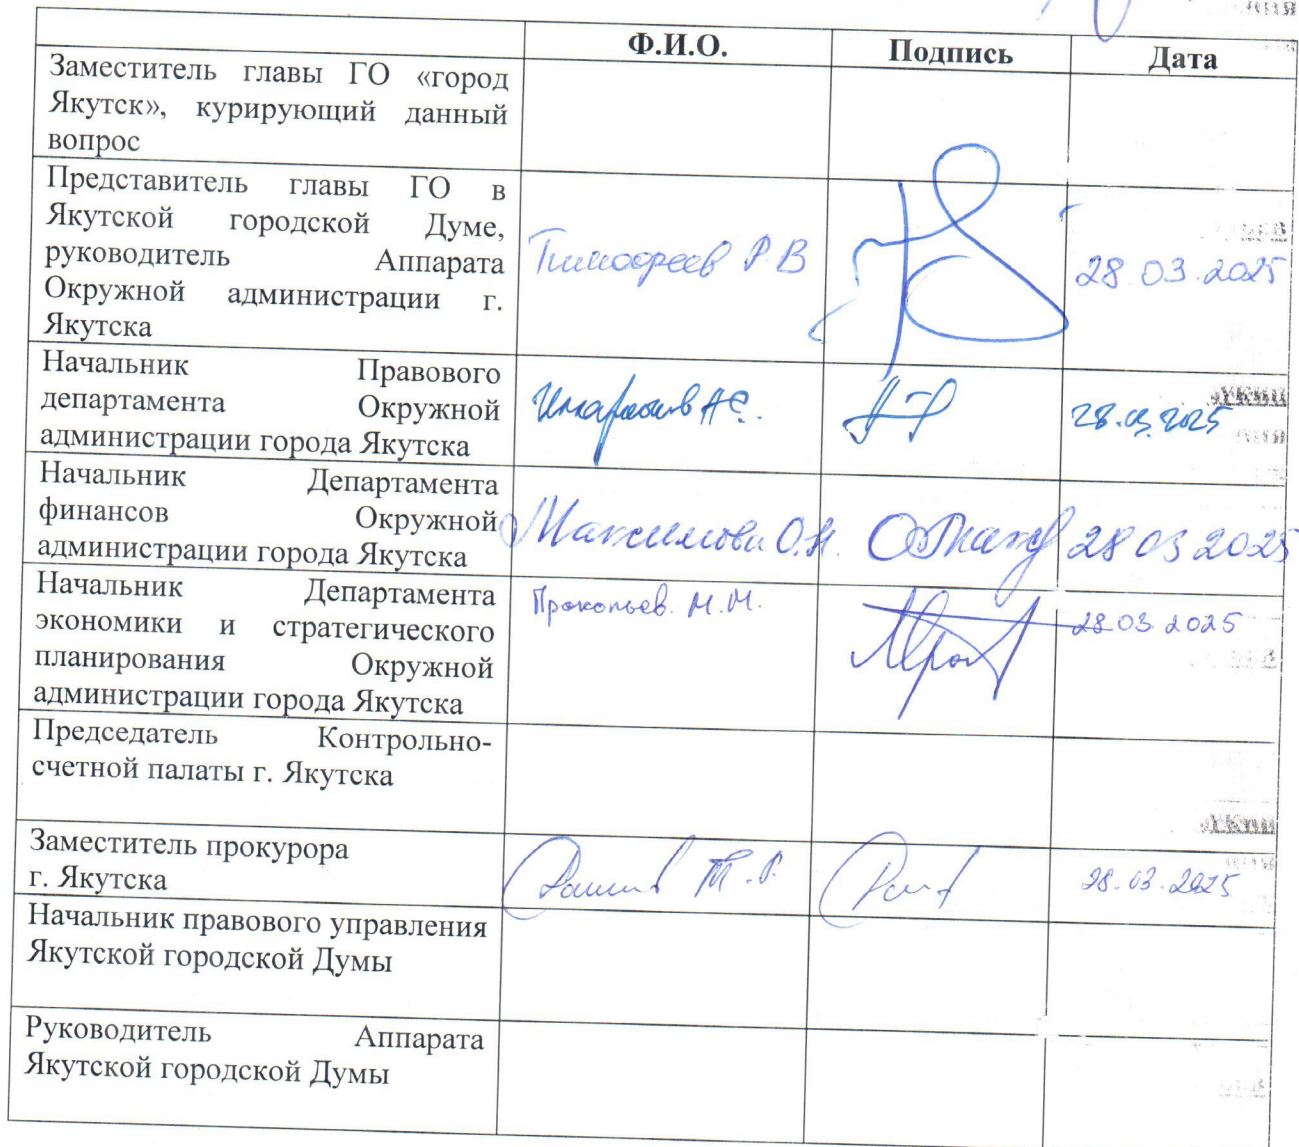 Ф.И.О. Подпись Дата
Заместитель главы ГО «город
Якутск», курирующий данный
вопрос
Представитель главы ГО в
Якутской городской Думе,
руководитель Аппарата
Окружной администрации г.
Якутска
Тимофеев Р В
28 03.2025
Начальник Правового
департамента Окружной
администрации города Якутска
28.03.2025
Начальник Департамента
финансов Окружной
администрации города Якутска
Максимова О.Н.
28 03 2025
Начальник Департамента
экономики и стратегического
планирования Окружной
администрации города Якутска
Прокопьев. М.М.
28.03.2025
Председатель Контрольно-
счетной палаты г. Якутска
Заместитель прокурора
г. Якутска
28.03.2025
Начальник правового управления
Якутской городской Думы
Руководитель Аппарата
Якутской городской Думы